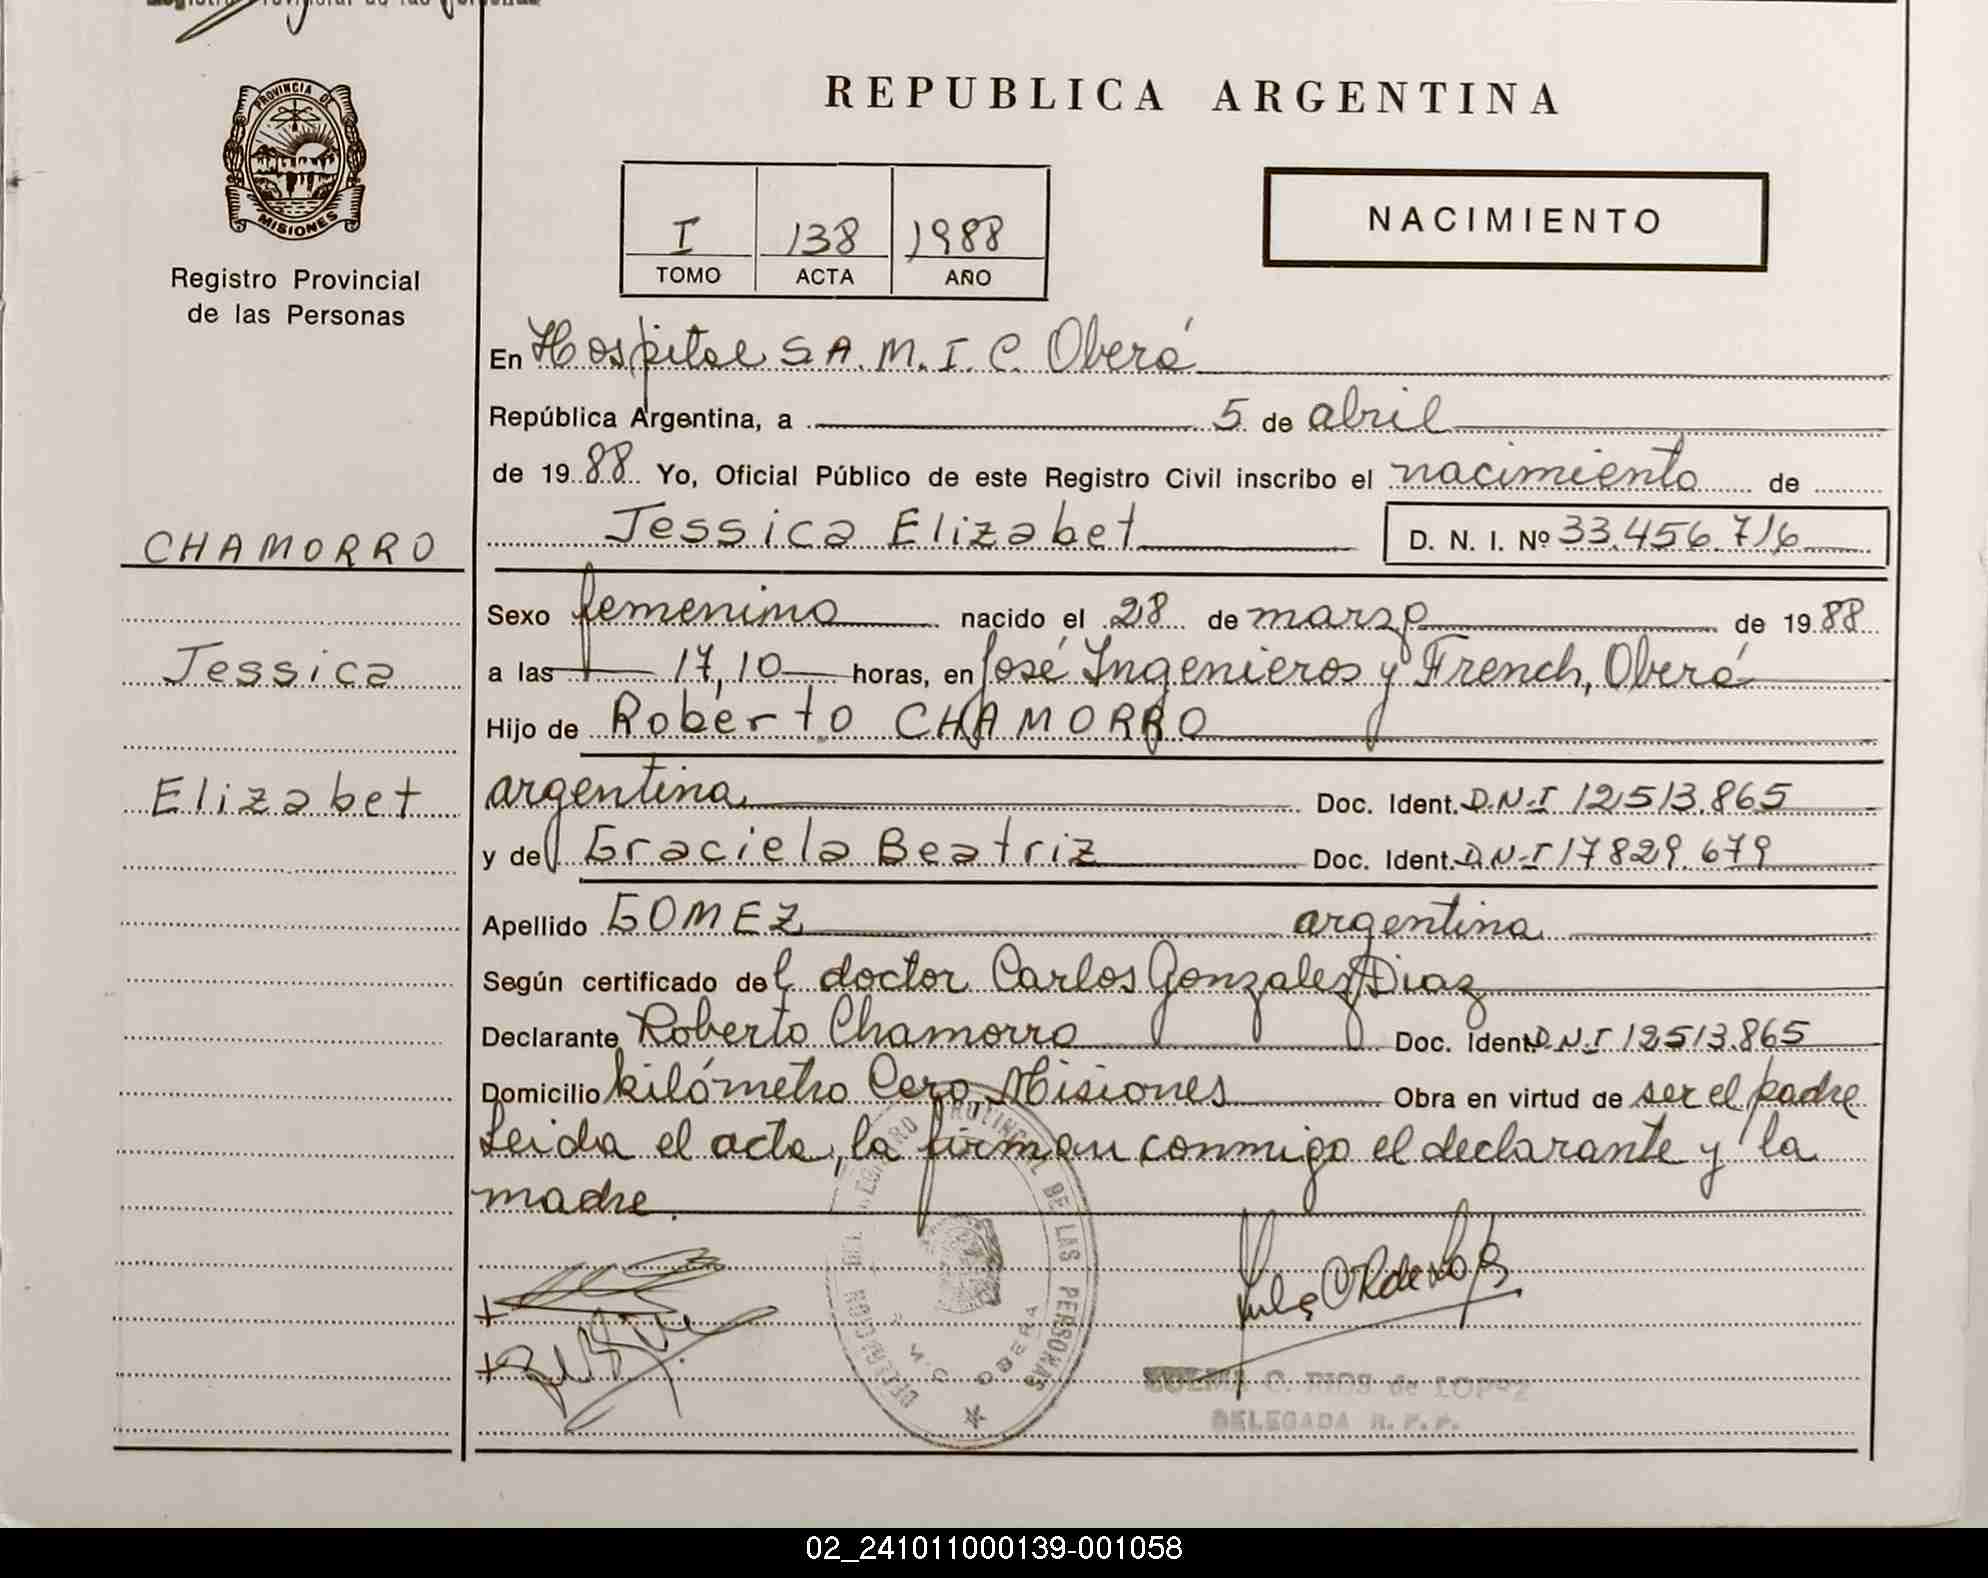 Registro Provincial de las Personas
PROVINCIA DE
MISIONES
Registro Provincial
de las Personas
REPUBLICA ARGENTINA
I 138 1988
TOMO ACTA AÑO
NACIMIENTO
En Hospital S.A.M.I.C. Oberá
República Argentina, a 5 de abril
de 1988 Yo, Oficial Público de este Registro Civil inscribo el nacimiento de
CHAMORRO
Jessica Elizabet D. N. I. Nº 33.456.716
Sexo femenino nacido el 28 de marzo de 1988
Jessica
a las 17,10 horas, en José Ingenieros y French, Oberá
Hijo de Roberto CHAMORRO
Elizabet
argentina Doc. Ident. D.N.I 12513.865
y de Graciela Beatriz Doc. Ident. D.N.I 17829.679
Apellido GOMEZ argentina
Según certificado del doctor Carlos Gonzalez Diaz
Declarante Roberto Chamorro Doc. Ident. D.N.I 12513.865
Domicilio kilómetro Cero, Misiones Obra en virtud de ser el padre
Leida el acta, la firman conmigo el declarante y la
madre.
REGISTRO PROVINCIAL DE LAS PERSONAS
OBERA
C. RIOS de LOPEZ
DELEGADA R. P. P.
02_241011000139-001058